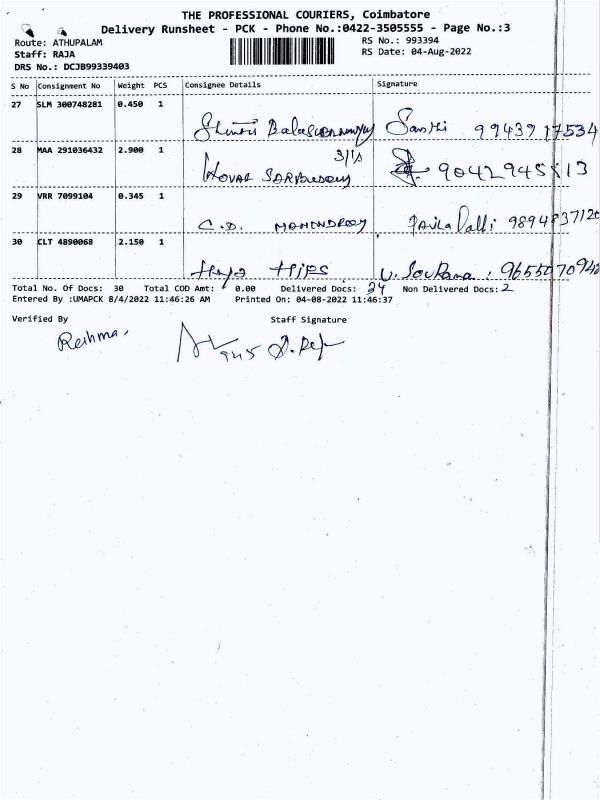 THE PROFESSIONAL COURIERS, Coimbatore
Delivery Runsheet - PCK - Phone No.:0422-3505555 - Page No.:3
Route: ATHUPALAM
RS No.: 993394
Staff: RAJA
RS Date: 04-Aug-2022
DRS No.: DCJB99339403
S No Consignment No Weight PCS Consignee Details Signature
27 SLM 300748281 0.450 1
Santhi 9943917534
28 MAA 291036432 2.900 1
9042945813
29 VRR 7099104 0.345 1
C.D.
30 CLT 4890068 2.150 1
Total No. Of Docs: 30 Total COD Amt: 0.00 Delivered Docs: Non Delivered Docs: 2
Entered By :UMAPCK 8/4/2022 11:46:26 AM Printed On: 04-08-2022 11:46:37
Verified By Staff Signature
Reshma